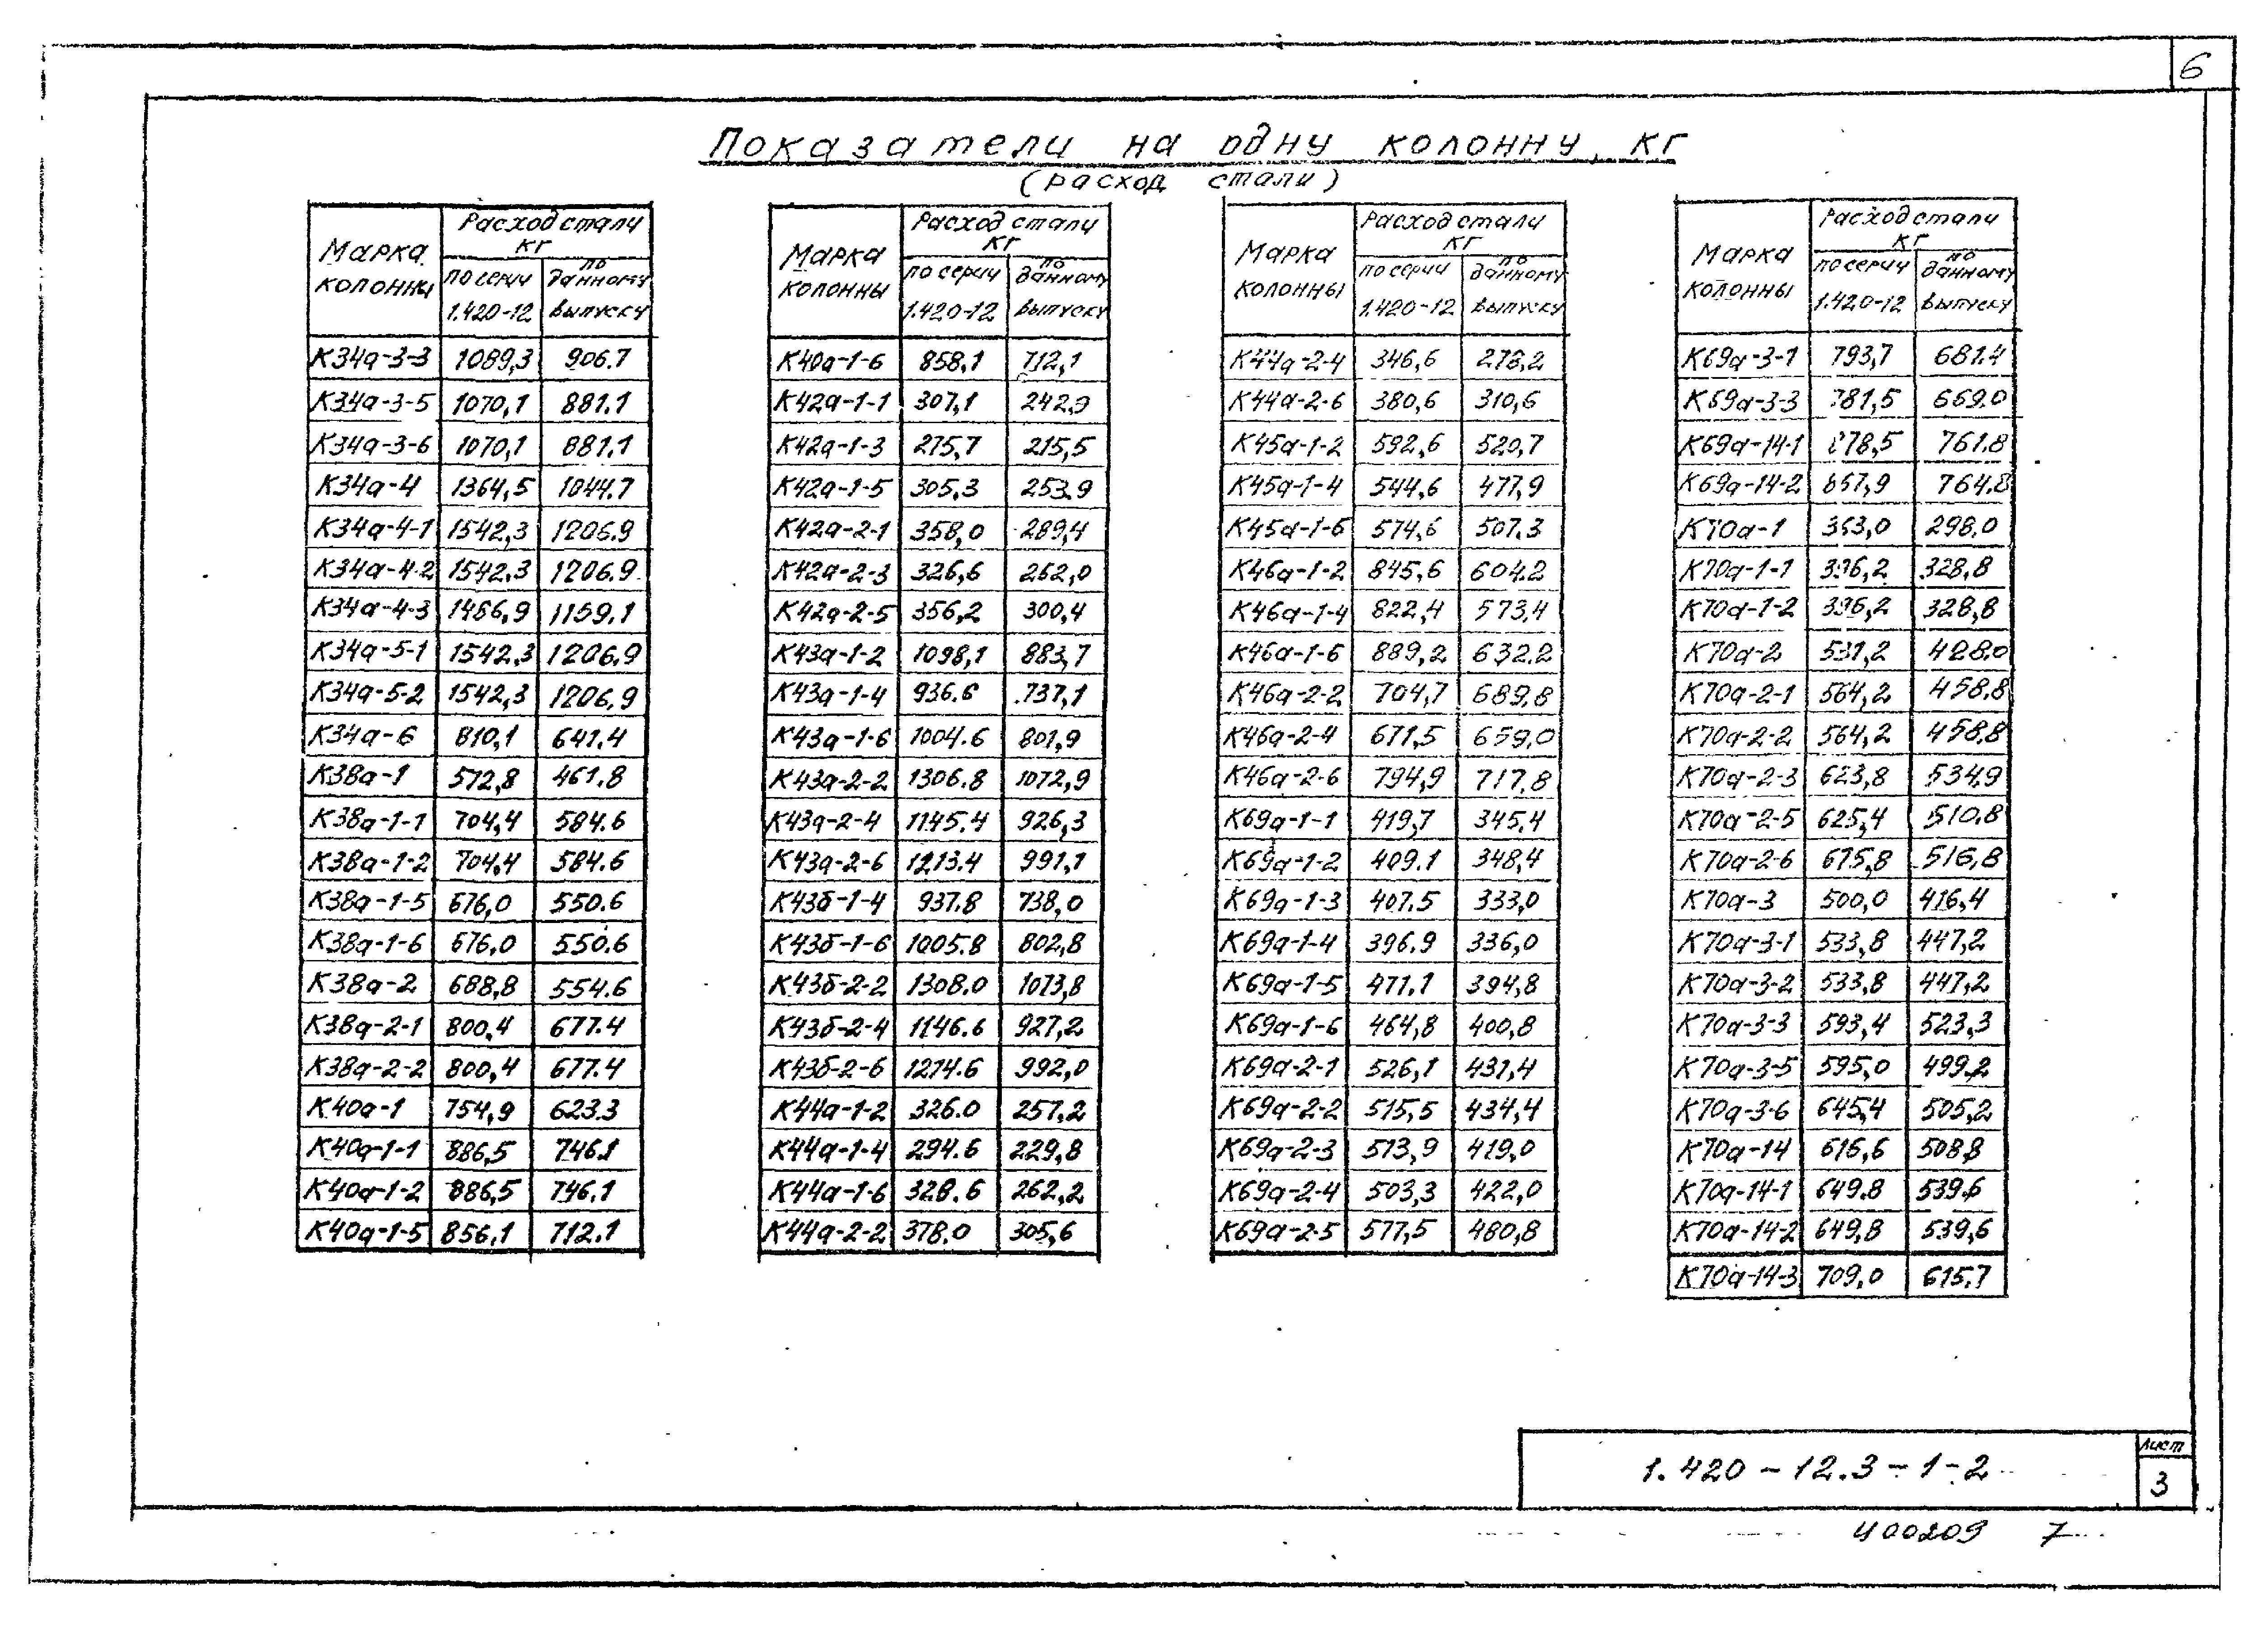 6
Показатели на одну колонну, кг
(расход стали)
Марка колонны
Расход стали кг
по серии 1.420-12
по данному выпуску
К34а-3-3 1089,3 906.7
К34а-3-5 1070,1 881.1
К34а-3-6 1070,1 881.1
К34а-4 1364,5 1044.7
К34а-4-1 1542,3 1206.9
К34а-4-2 1542.3 1206.9
К34а-4-3 1486,9 1159.1
К34а-5-1 1542.3 1206.9
К34а-5-2 1542,3 1206.9
К34а-6 810,1 641.4
К38а-1 572,8 461.8
К38а-1-1 704,4 584.6
К38а-1-2 704,4 584.6
К38а-1-5 676,0 550.6
К38а-1-6 676,0 550.6
К38а-2 688,8 554.6
К38а-2-1 800,4 677.4
К38а-2-2 800,4 677.4
К40а-1 754,9 623.3
К40а-1-1 886,5 746.1
К40а-1-2 886,5 746.1
К40а-1-5 856,1 712.1
Марка колонны
Расход стали кг
по серии 1.420-12
по данному выпуску
К40а-1-6 858,1 712,1
К42а-1-1 307,1 242,9
К42а-1-3 275,7 215,5
К42а-1-5 305,3 253.9
К42а-2-1 358,0 289,4
К42а-2-3 326,6 262,0
К42а-2-5 356,2 300,4
К43а-1-2 1098,1 883,7
К43а-1-4 936.6 737,1
К43а-1-6 1004.6 801,9
К43а-2-2 1306.8 1072,9
К43а-2-4 1145.4 926,3
К43а-2-6 1213.4 991,1
К43б-1-4 937.8 738,0
К43б-1-6 1005.8 802,8
К43б-2-2 1308.0 1073,8
К43б-2-4 1146.6 927,2
К43б-2-6 1214.6 992,0
К44а-1-2 326.0 257,2
К44а-1-4 294.6 229,8
К44а-1-6 328.6 262,2
К44а-2-2 378.0 305,6
Марка колонны
Расход стали кг
по серии 1.420-12
по данному выпуску
К44а-2-4 346,6 278,2
К44а-2-6 380,6 310,6
К45а-1-2 592,6 520,7
К45а-1-4 544,6 477,9
К45а-1-6 574,6 507.3
К46а-1-2 845,6 604.2
К46а-1-4 822,4 573,4
К46а-1-6 889,2 632.2
К46а-2-2 704,7 689,8
К46а-2-4 671,5 659,0
К46а-2-6 794,9 717,8
К69а-1-1 419,7 345,4
К69а-1-2 409.1 348,4
К69а-1-3 407.5 333,0
К69а-1-4 396.9 336,0
К69а-1-5 471.1 394,8
К69а-1-6 464,8 400,8
К69а-2-1 526,1 431,4
К69а-2-2 515,5 434,4
К69а-2-3 513,9 419,0
К69а-2-4 503,3 422,0
К69а-2-5 577,5 480,8
Марка колонны
Расход стали кг
по серии 1.420-12
по данному выпуску
К69а-3-1 793,7 681.4
К69а-3-3 781,5 669.0
К69а-14-1 878,5 761.8
К69а-14-2 867,9 764.8
К70а-1 363,0 298,0
К70а-1-1 396,2 328,8
К70а-1-2 396,2 328,8
К70а-2 531,2 428,0
К70а-2-1 564,2 458.8
К70а-2-2 564,2 458,8
К70а-2-3 623,8 534,9
К70а-2-5 625,4 510,8
К70а-2-6 675,8 516,8
К70а-3 500,0 416,4
К70а-3-1 533,8 447,2
К70а-3-2 533,8 447,2
К70а-3-3 593,4 523,3
К70а-3-5 595,0 499,2
К70а-3-6 645,4 505,2
К70а-14 616,6 508,8
К70а-14-1 649.8 539,6
К70а-14-2 649,8 539,6
К70а-14-3 709,0 615,7
1.420-12.3-1-2
Лист
3
Ч00209 7